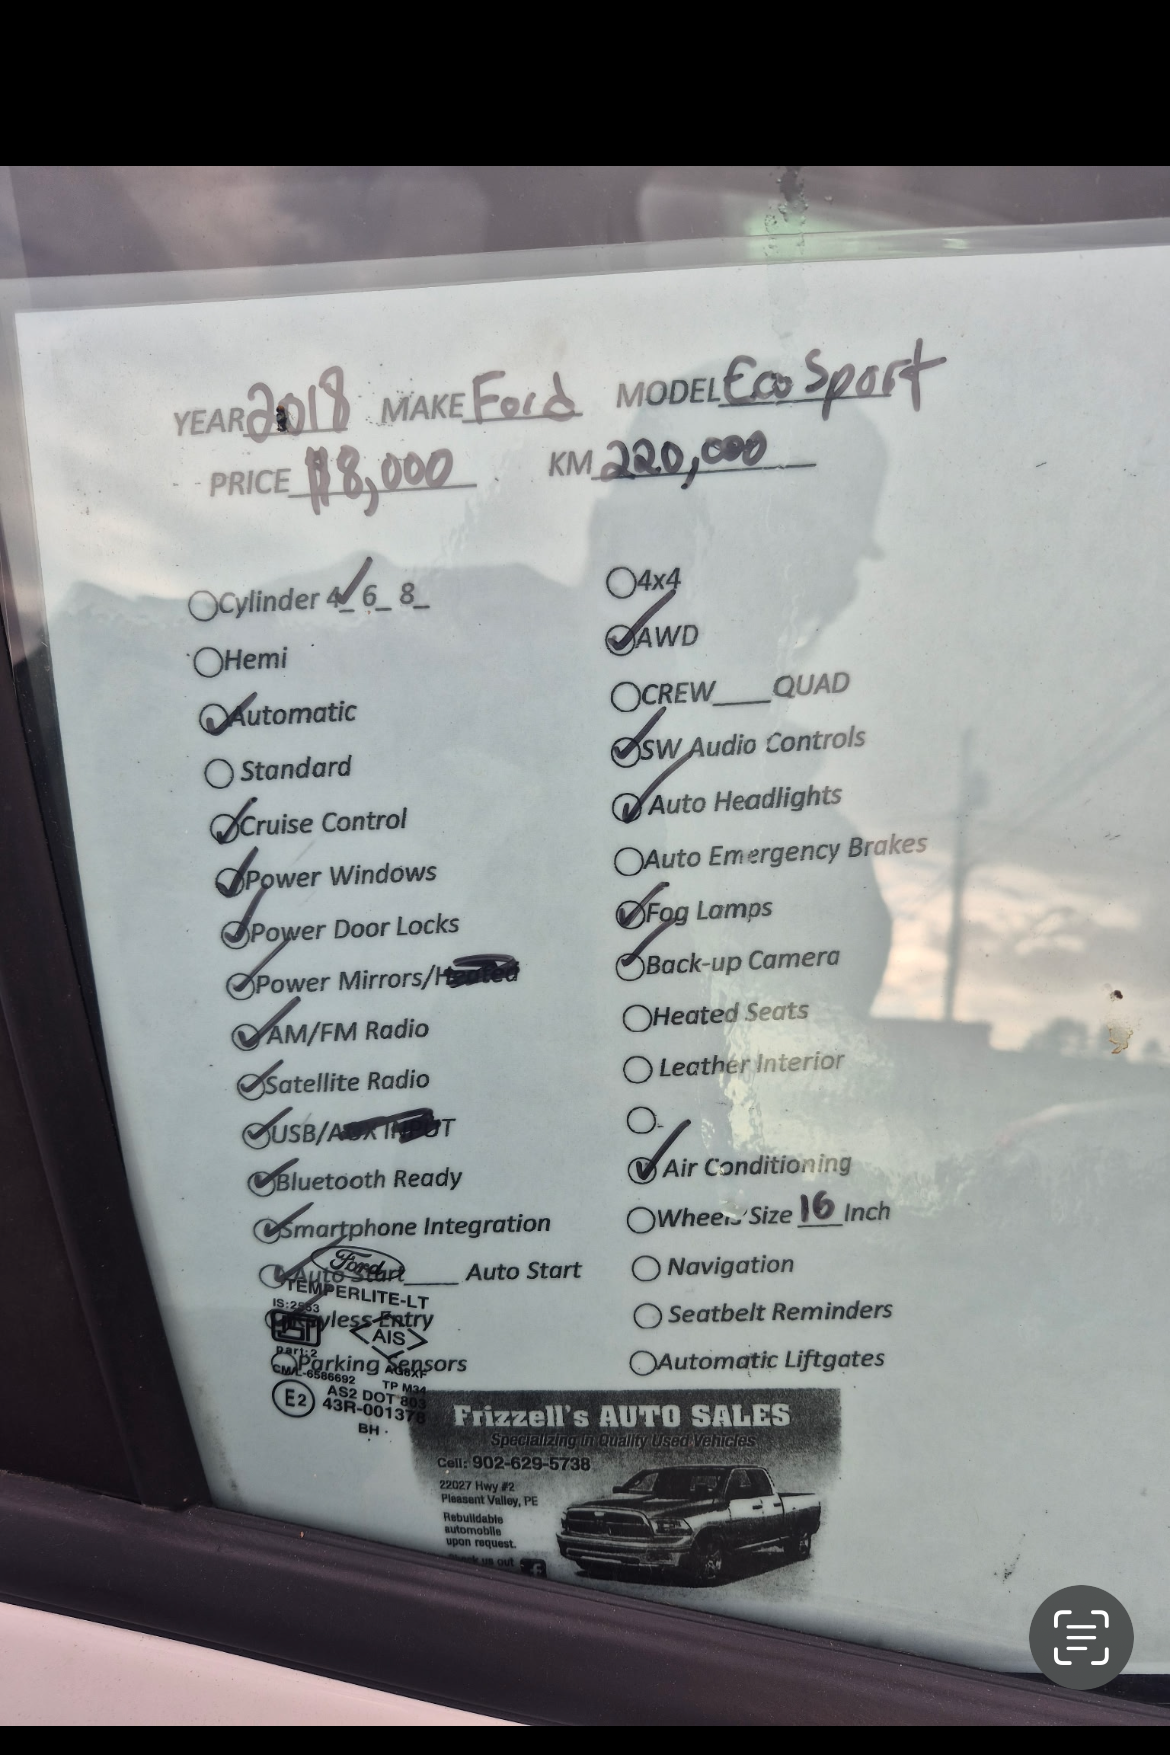 YEAR 2018 MAKE Ford MODEL Eco Sport
PRICE $8,000 KM 220,000
Cylinder 4_ 6_ 8_
Hemi
Automatic
Standard
Cruise Control
Power Windows
Power Door Locks
Power Mirrors/Heated
AM/FM Radio
Satellite Radio
USB/AUX INPUT
Bluetooth Ready
Smartphone Integration
Auto Start____ Auto Start
Keyless Entry
Parking Sensors
4x4
AWD
CREW____QUAD
SW Audio Controls
Auto Headlights
Auto Emergency Brakes
Fog Lamps
Back-up Camera
Heated Seats
Leather Interior
Air Conditioning
Wheels Size 16 Inch
Navigation
Seatbelt Reminders
Automatic Liftgates
Ford
TEMPERLITE-LT
IS:2553
AIS
Part:2
CM/L-6586692
TP M34
E2
AS2 DOT 803
43R-001378
BH
Frizzell's AUTO SALES
Specializing in Quality Used Vehicles
Cell: 902-629-5738
22027 Hwy #2
Pleasant Valley, PE
Rebuildable
automobile
upon request.
Check us out f